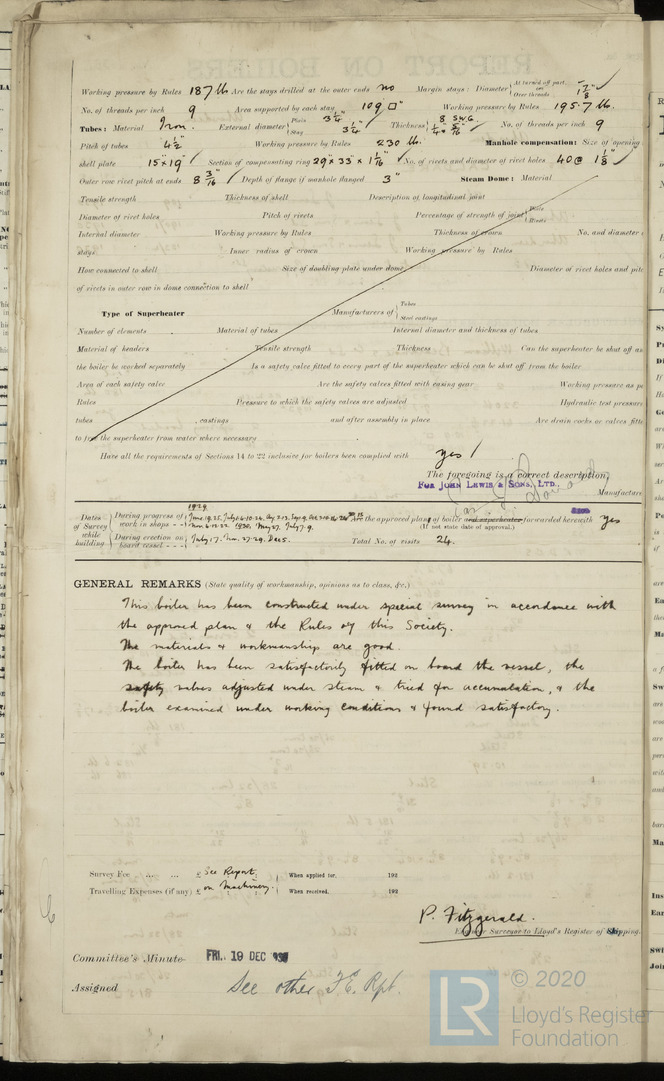 Working pressure by Rules 187 lb Are the stays drilled at the outer ends no Margin stays: Diameter { At turned off part, or Over threads 1 7/8"
No. of threads per inch 9 Area supported by each stay 109 □" Working pressure by Rules 195.7 lb.
Tubes: Material Iron. External diameter { Plain 3 1/4" Stay 3 1/4" Thickness { 8 S.W.G. 1/4" × 5/16" No. of threads per inch 9
Pitch of tubes 4 1/2" Working pressure by Rules 230 lb. Manhole compensation: Size of opening
shell plate 15" × 19" Section of compensating ring 29" × 33" × 1 1/16" No. of rivets and diameter of rivet holes 40 @ 1 1/8"
Outer row rivet pitch at ends 8 3/16" Depth of flange if manhole flanged 3" Steam Dome: Material
Tensile strength Thickness of shell Description of longitudinal joint
Diameter of rivet holes Pitch of rivets Percentage of strength of joint { Plate Rivets
Internal diameter Working pressure by Rules Thickness of crown No. and diameter
stays Inner radius of crown Working pressure by Rules
How connected to shell Size of doubling plate under dome Diameter of rivet holes and pit
of rivets in outer row in dome connection to shell
Type of Superheater Manufacturers of { Tubes Steel castings
Number of elements Material of tubes Internal diameter and thickness of tubes
Material of headers Tensile strength Thickness Can the superheater be shut off an
the boiler be worked separately Is a safety valve fitted to every part of the superheater which can be shut off from the boiler
Area of each safety valve Are the safety valves fitted with easing gear Working pressure as pe
Rules Pressure to which the safety valves are adjusted Hydraulic test pressure
tubes , castings and after assembly in place Are drain cocks or valves fitte
to free the superheater from water where necessary
Have all the requirements of Sections 14 to 22 inclusive for boilers been complied with yes /
The foregoing is a correct description,
FOR JOHN LEWIS & SONS, LTD.,
Manufactur
1929
Dates of Survey while building { During progress of work in shops - - } { During erection on board vessel - - - } July 17. Nov. 27. 29. Dec 5.
Are the approved plans of boiler and superheater forwarded herewith yes
(If not state date of approval.)
Total No. of visits 24.
GENERAL REMARKS (State quality of workmanship, opinions as to class, &c.)
This boiler has been constructed under special survey in accordance with
the approved plan & the Rules of this Society.
The materials & workmanship are good.
The boiler has been satisfactorily fitted on board the vessel, the
safety valves adjusted under steam & tried for accumulation, & the
boiler examined under working conditions & found satisfactory.
Survey Fee ... ... ... £ See Report When applied for, 192
Travelling Expenses (if any) £ on Machinery. When received, 192
P. Fitzgerald.
Engineer Surveyor to Lloyd's Register of Shipping.
Committee's Minute FRI. 19 DEC 1930
Assigned See other F.E. Rpt.
LR © 2020
Lloyd's Register
Foundation